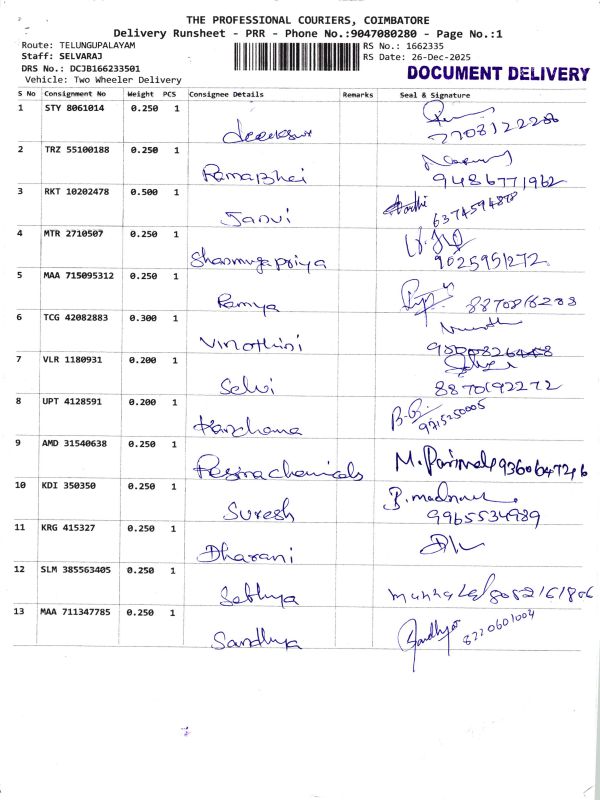 THE PROFESSIONAL COURIERS, COIMBATORE
Delivery Runsheet - PRR - Phone No.:9047080280 - Page No.:1
Route: TELUNGUPALAYAM
RS No.: 1662335
Staff: SELVARAJ
RS Date: 26-Dec-2025
DRS No.: DCJB166233501
DOCUMENT DELIVERY
Vehicle: Two Wheeler Delivery
S No Consignment No Weight PCS Consignee Details Remarks Seal & Signature
1 STY 8061014 0.250 1
7708122286
2 TRZ 55100188 0.250 1
RamaBhai 9486771962
3 RKT 10202478 0.500 1
Janvi 6374594878
4 MTR 2710507 0.250 1
Shanmugapriya 9025951272
5 MAA 715095312 0.250 1
Ramya
6 TCG 42082883 0.300 1
Vinothini
7 VLR 1180931 0.200 1
Selvi 8870192272
8 UPT 4128591 0.200 1
9715250005
9 AMD 31540638 0.250 1
chemicals M. Parimala 9360647216
10 KDI 350350 0.250 1
Suresh 9965534989
11 KRG 415327 0.250 1
Dharani
12 SLM 385563405 0.250 1
Sathya
13 MAA 711347785 0.250 1
Sandhya Sandhya 8220601004